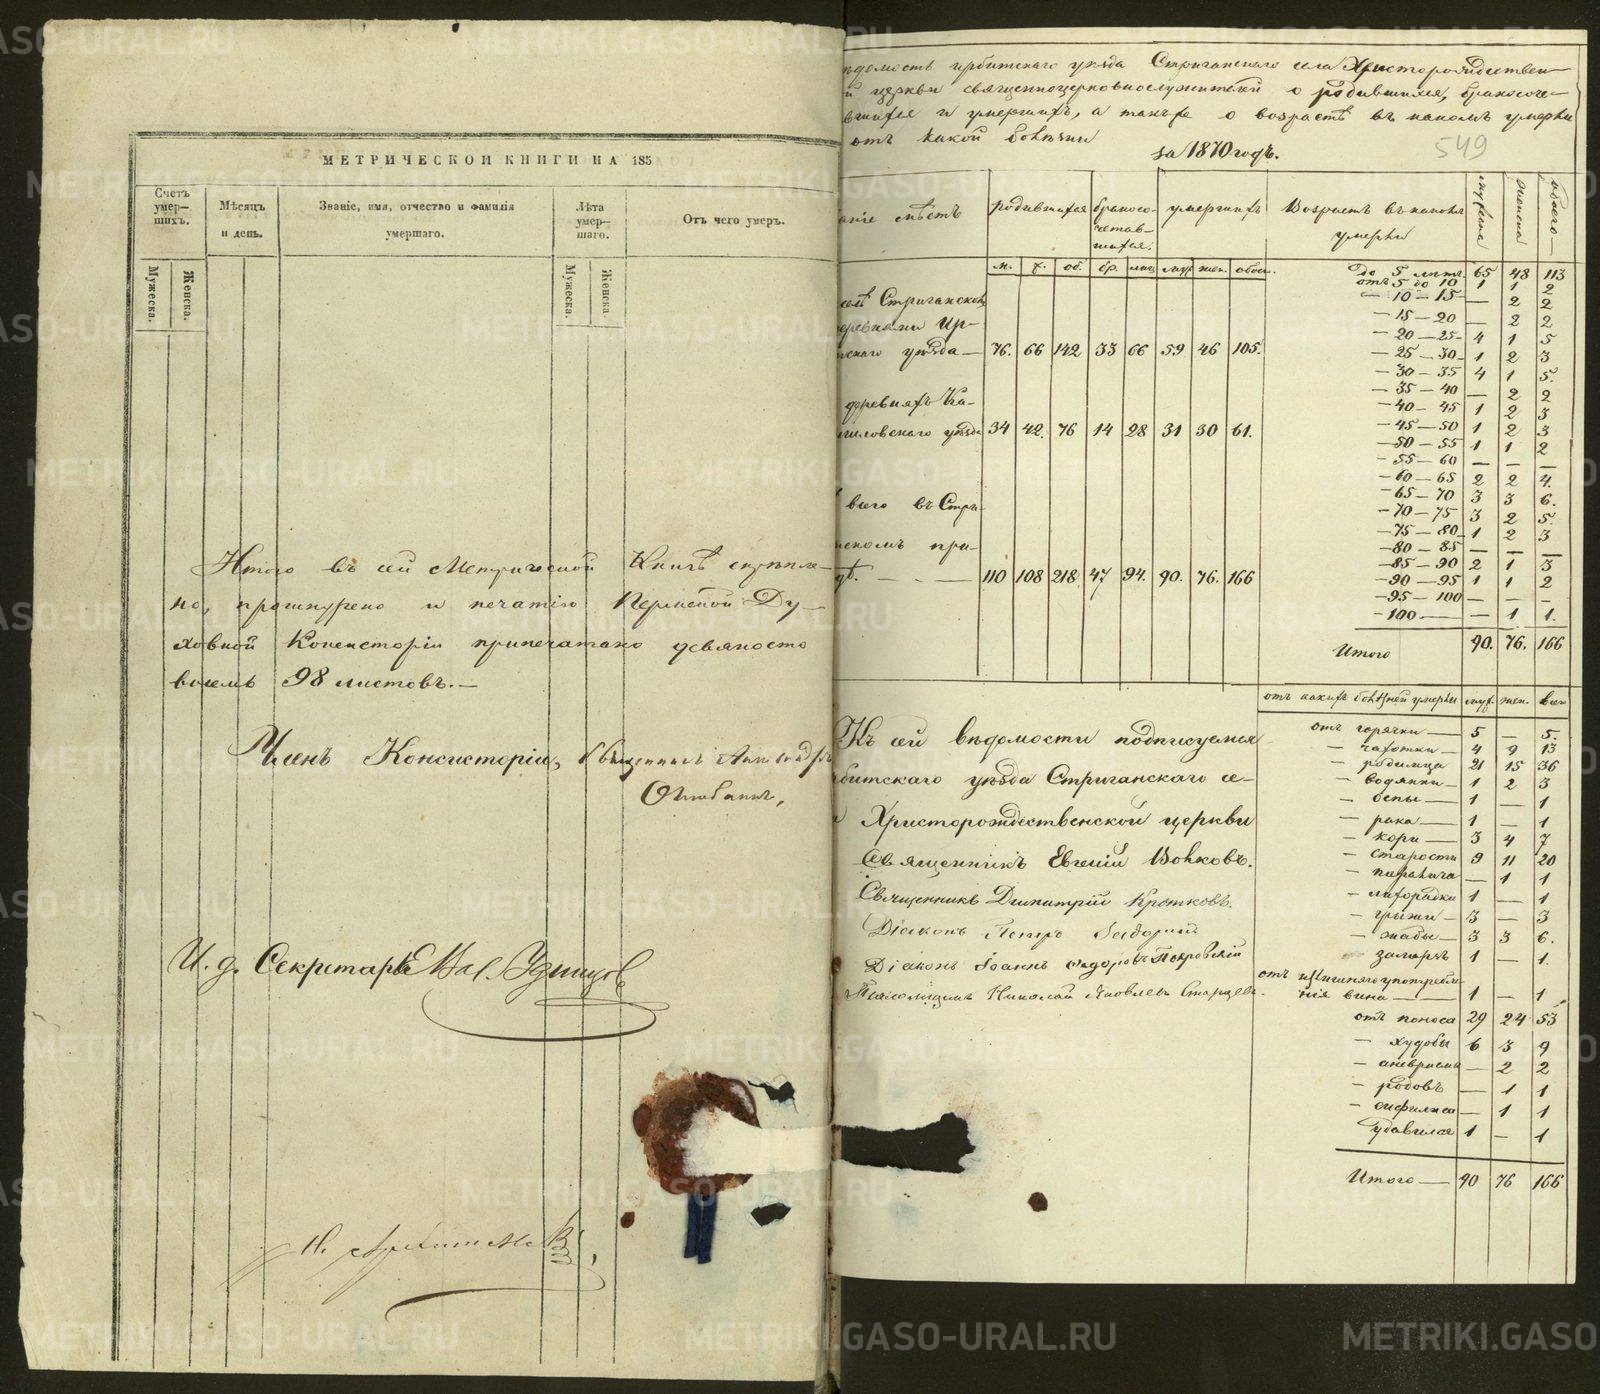 МЕТРИЧЕСКОЙ КНИГИ НА 185
Счетъ умер-шихъ.
Мѣсяцъ и день.
Званіе, имя, отчество и фамилія умершаго.
Лѣта умер-шаго.
Отъ чего умеръ.
Мужеска. Женска. Мужеска. Женска.
Итого въ сей Метрической Книгѣ скрѣпле-
но, прошнурено и печатію Пермской Ду-
ховной Консисторіи припечатано девяносто
восемь 98 листовъ.—
Членъ Консисторіи, Священникъ
И. д. Секретаря
Н.
вѣдомость ирбитскаго уѣзда Стриганскаго села Христорождествен-
й церкви священноцерковнослужителей о родившихся, бракосоче-
вшихся и умершихъ, а также о возрастѣ въ какомъ умерли
отъ какой болѣзни
за 1870 годъ.
549
аніе мѣстъ родившихся бракосо-четав-шихся. умершихъ
м. ж. об. бр. лиц муж. жен. обоег.
селѣ Стриганском
деревнями Ир-
скаго уѣзда — 76. 66 142 33 66 59 46 105.
деревняхъ Ка-
мышловскаго уѣзда 34 42. 76 14 28 31 30 61.
всего въ Стри-
нскомъ при-
дѣ. — — 110 108 218 47 94. 90. 76. 166
Возрастъ въ какомъ умерли мужеска женска всего
до 5 лѣтъ 65 48 113
отъ 5 до 10 1 1 2
— 10 — 15 — 2 2
— 15 — 20 — 2 2
— 20 — 25 4 1 5
— 25 — 30 1 2 3
— 30 — 35 4 1 5.
— 35 — 40 — 2 2
— 40 — 45 1 2 3
— 45 — 50 1 2 3
— 50 — 55 1 1 2
— 55 — 60 — — —
— 60 — 65 2 2 4.
— 65 — 70 3 3 6.
— 70 — 75 3 2 5.
— 75 — 80 1 2 3
— 80 — 85 — — —
— 85 — 90 2 1 3
— 90 — 95 1 1 2
— 95 — 100 — — —
— 100 — — 1 1.
Итого 90. 76. 166
отъ какихъ болѣзней умерли муж. жен. всего
отъ горячки — 5 — 5.
— чахотки — 4 9 13
— родимца 21 15 36
— водянки — 1 2 3
— оспы — 1 — 1
— рака — 1 — 1
— кори — 3 4 7
— старости 9 11 20
— паралича — 1 1
— лихорадки 1 — 1
— грыжи — 3 — 3
— жабы — 3 3 6.
— замерзъ 1 — 1.
отъ излишняго употребле-
нія вина — 1 — 1
отъ поноса 29 24 53
— худобы 6 3 9
— аневризма — 2 2
— родовъ — 1 1
— сифилиса — 1 1
удавился 1 — 1
Итого — 90 76 166
Къ сей вѣдомости подписуемся
рбитскаго уѣзда Стриганскаго се-
Христорождественской церкви
Священникъ Евгеній Волковъ.
Священникъ Димитрій Кротковъ.
Діаконъ Петръ
Діаконъ Іоаннъ Ѳедоровъ Покровскій
Псаломщикъ Николай Яковлевъ Старцевъ.
METRIKI.GASO-URAL.RU